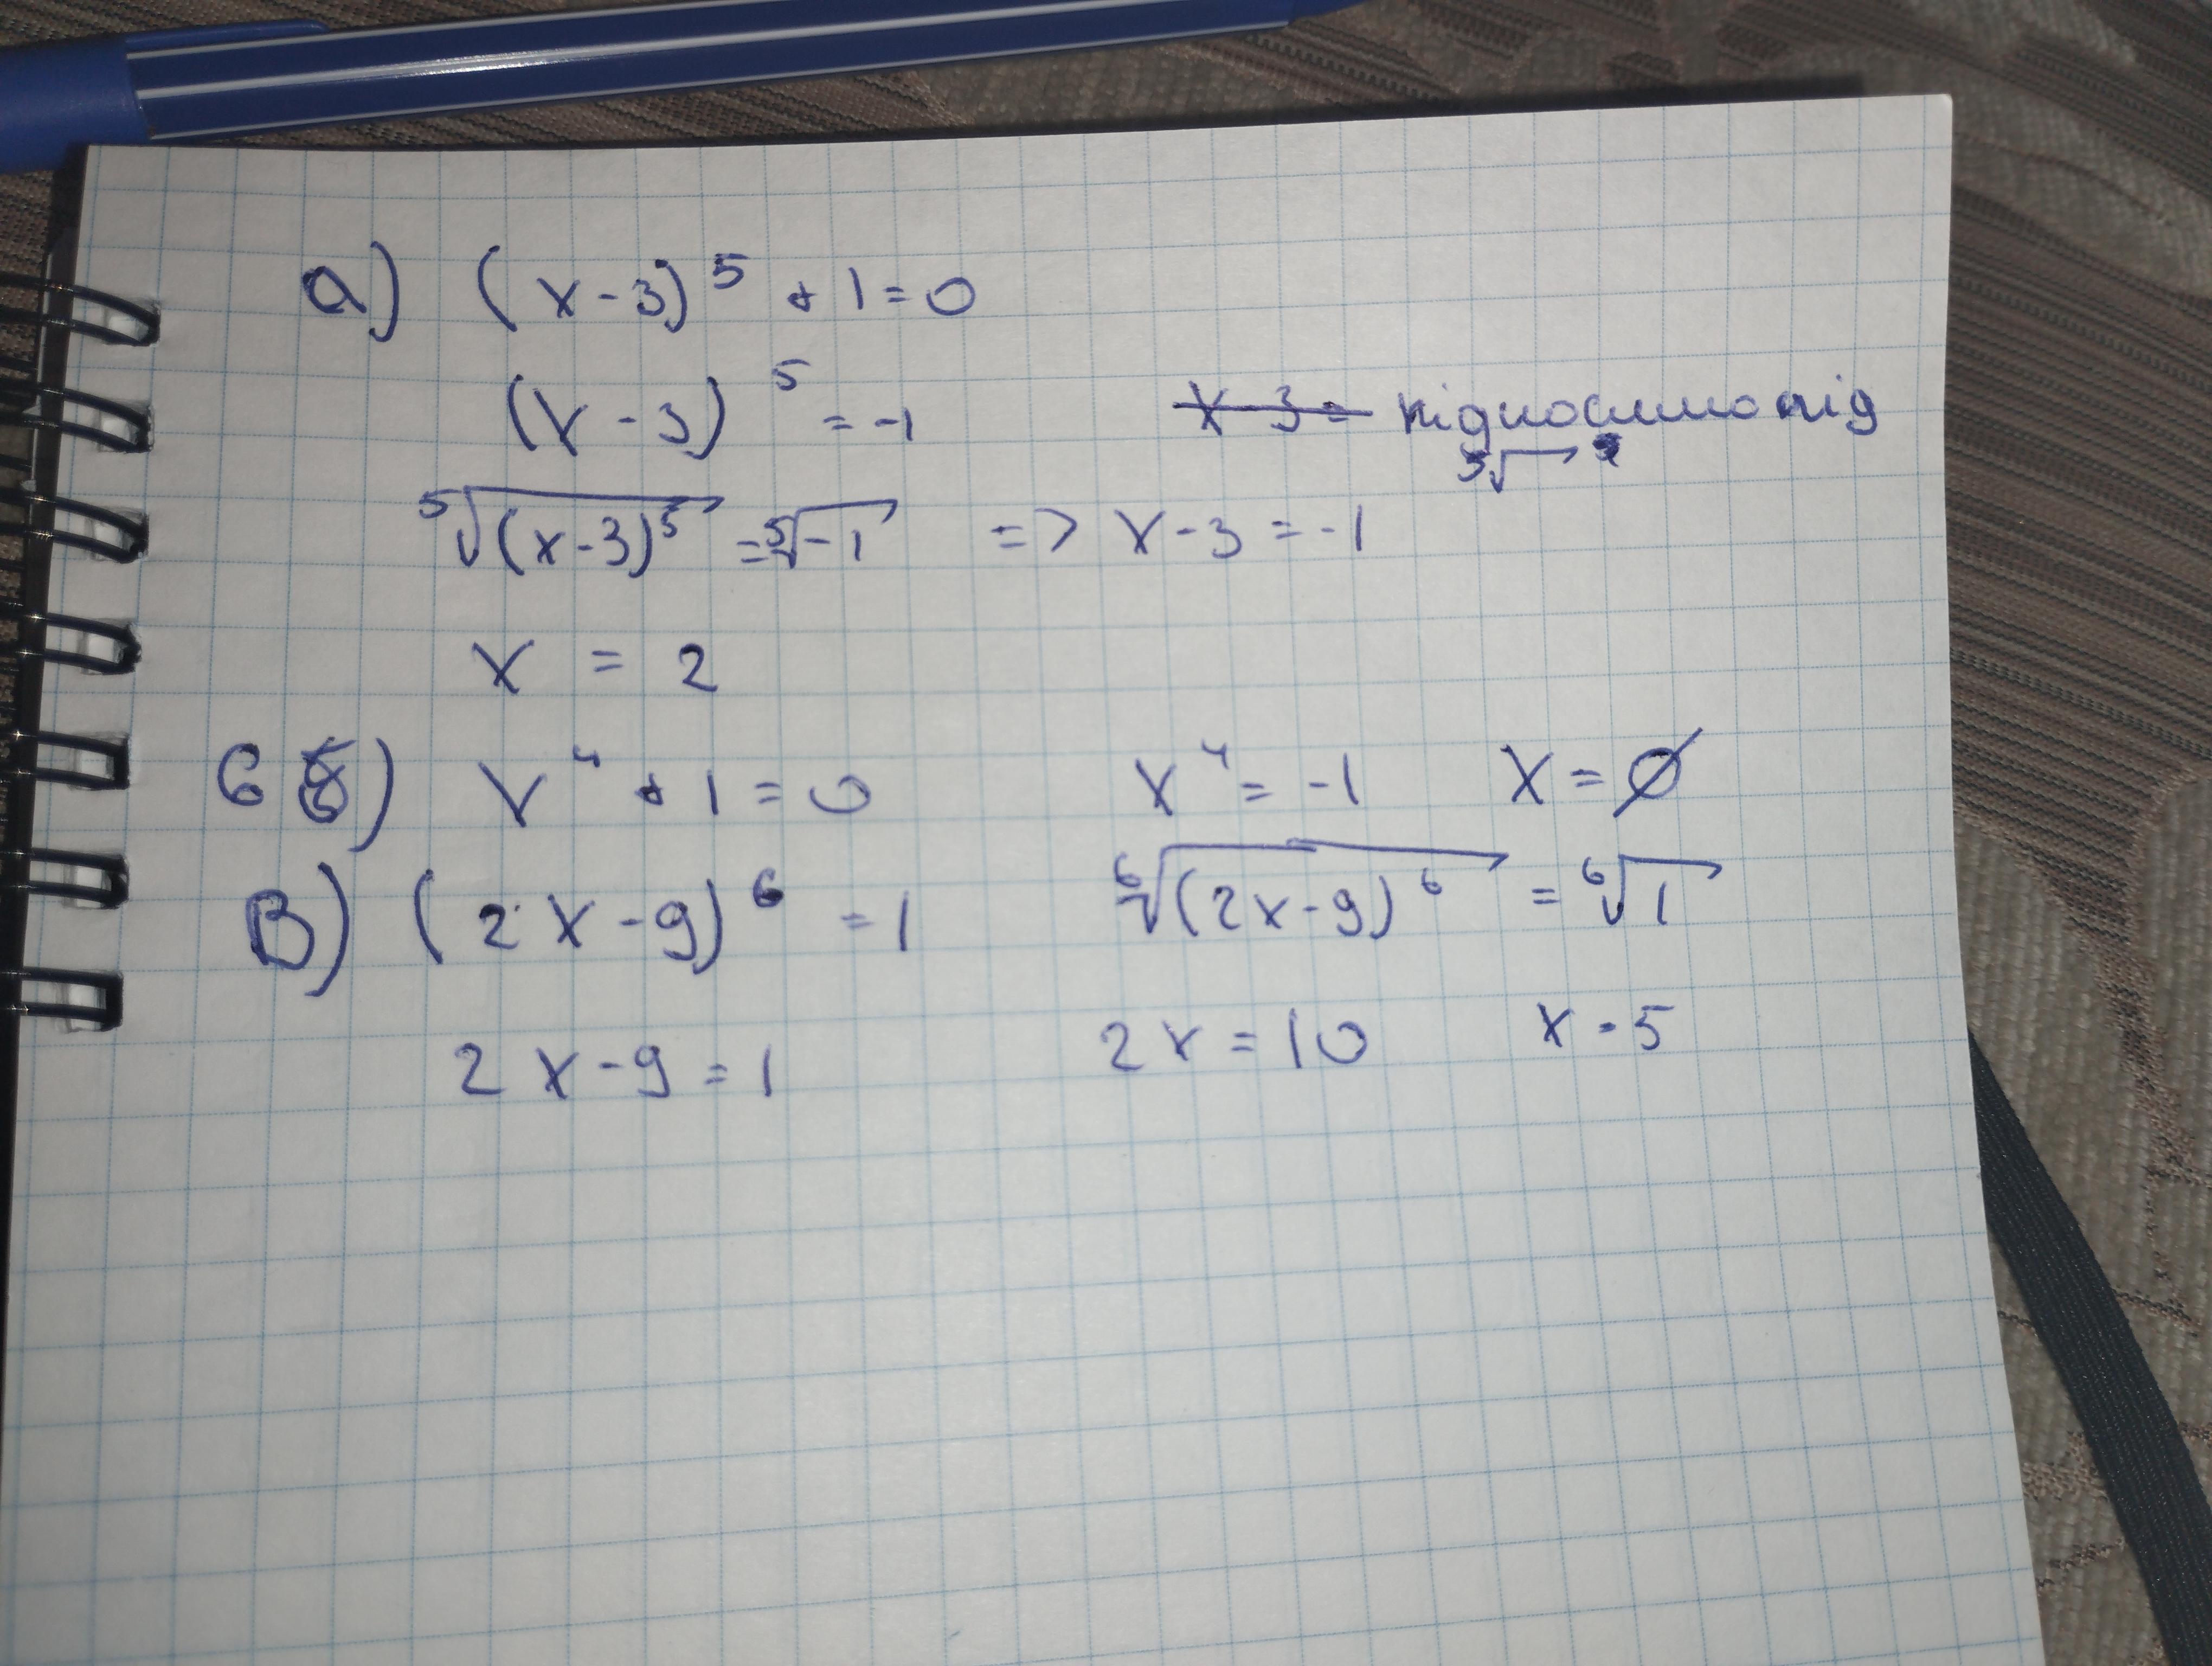 а) (x-3)⁵ + 1 = 0
(x-3)⁵ = -1 підносимо під
⁵√
⁵√(x-3)⁵ = ⁵√-1 => x-3 = -1
x = 2
б) x⁴ + 1 = 0 x⁴ = -1 x = ∅
В) (2x-9)⁶ = 1 ⁶√(2x-9)⁶ = ⁶√1
2x-9 = 1 2x = 10 x - 5